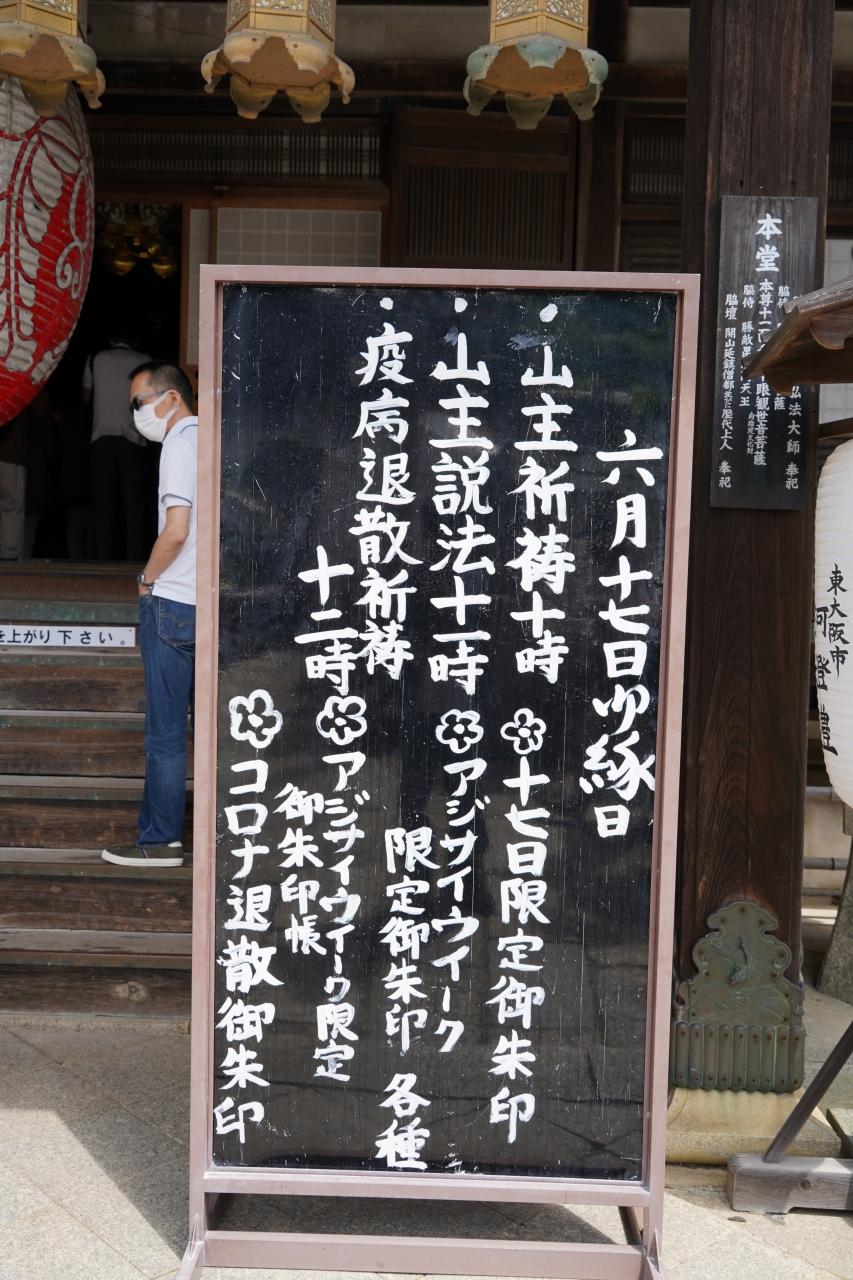 六月十七日御縁日
・山主祈祷十時
・山主説法十一時
・疫病退散祈祷
十二時
十七日限定御朱印
アジサイウイーク
限定御朱印 各種
アジサイウイーク限定
御朱印帳
コロナ退散御朱印
本堂
弘法大師 奉祀
眼観世音菩薩
脇侍 勝敵
天王 府指定文化財
脇壇 開山延鎮僧都並に歴代上人 奉祀
を上がり下さい。
東大阪市